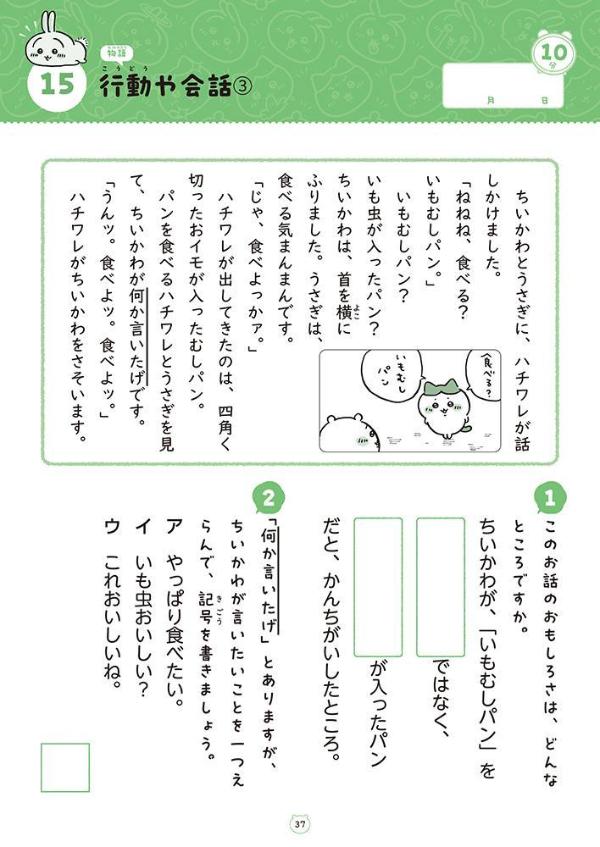 15
物語
行動や会話③
こうどう
10分
月 日
ちいかわとうさぎに、ハチワレが話
しかけました。
「ねねね、食べる？
いもむしパン。」
いもむしパン？
いも虫が入ったパン？
ちいかわは、首を横に
よこ
ふりました。うさぎは、
食べる気まんまんです。
「じゃ、食べよっかァ。」
ハチワレが出してきたのは、四角く
切ったおイモが入ったむしパン。
パンを食べるハチワレとうさぎを見
て、ちいかわが何か言いたげです。
「うんッ。食べよッ。食べよッ。」
ハチワレがちいかわをさそいます。
食べる？
いもむし
パン
1
このお話のおもしろさは、どんな
ところですか。
ちいかわが、「いもむしパン」を
ではなく、
が入ったパン
だと、かんちがいしたところ。
2
「何か言いたげ」とありますが、
ちいかわが言いたいことを一つえ
らんで、記号を書きましょう。
きごう
ア やっぱり食べたい。
イ いも虫おいしい？
ウ これおいしいね。
37